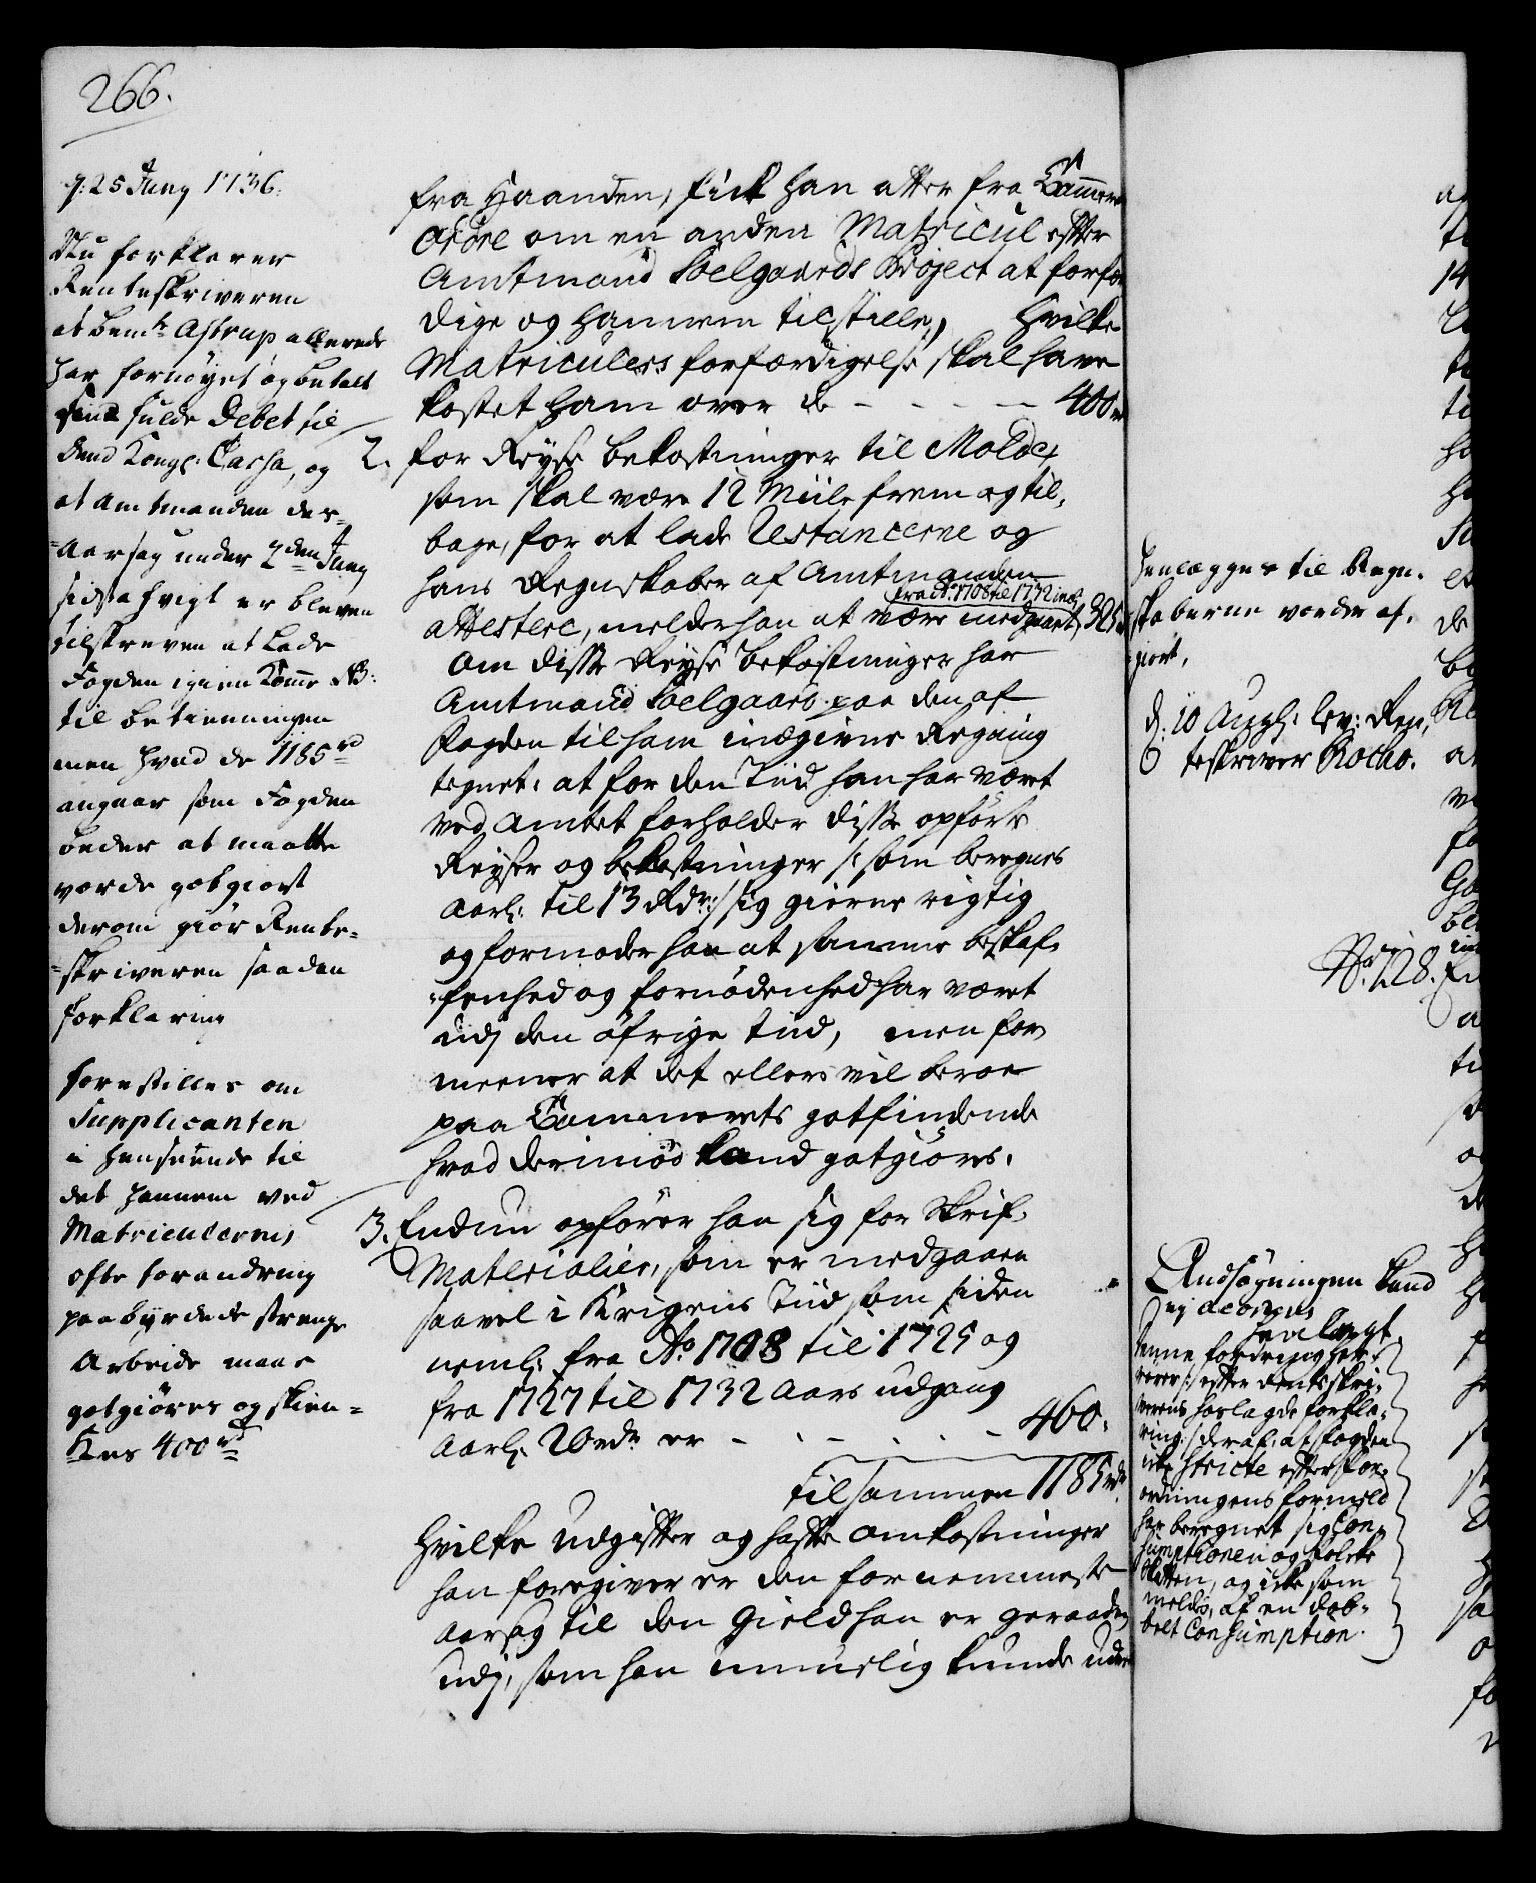 266.
d: 25 Juny 1736.
Nu forklarer
Renteskriveren
at bem.te Astrup allerede
har fornøyet og betalt
sin fulde Debet til
dend Kongl: Cassa, og
at amtmanden der-
=aarsag under 2den Juny
sidstafvigt er bleven
tilskreven at lade
Fogden igien komme
til betienningen
men hvad de 1185 rd
angaar som Fogden
beder at maatte
vorde godgiort
derom giør Rente-
=skriveren saadan
forklaring
forestilles om
Supplicanten
i henseende til
det hannem ved
Matriculernes
ofte forandring
paabyrdede strenge
Arbeide maae
godgiøres og skien=
kes 400 rd
fra Haanden, fick han atter fra Cammeret
Ordre om en anden Matricul efter
Amtmand Soelgaards Project at forfær
dige og hannem tilstille, Hvilke
Matriculers forfærdigelse skal have
kostet ham over de - - - - 400 rd
2. for Reyse bekostninger til Molde,
som skal være 12 Miile frem og til,
bage, for at lade Restancerne og
hans Regnskaber af Amtmanden
fra Ao 1708 til 1732 incl.
attestere, melder han at være medgaaet, 325 rd
Om disse Reyse bekostninger har
Amtmand Soelgaard paa den af
Fogden til ham indgivne Regning
tegnet: at for den Tiid han har været
ved Amtet forholder disse opførte
Reyser og bekostninger /: som beregnes
aarl: til 13 Rdr:/ sig gierne rigtig
og formoder han at samme beskaf-
=fenhed og fornødenhed har været
udj den øfrige tiid, men for
meener at det ellers vil beroe
paa Cammerets gotfindende
hvad derimod kand gotgiøres.
3. Endnu opfører han sig for Skrif-
Materialier, som er medgaaen
saavel i Krigens Tiid som siden
neml: fra Ao 1708 til 1725 og
fra 1727 til 1732 Aars udgang
aarl: 20 rdr er - - - - - 460.
tilsammen 1185 rdr
Hvilke Udgifter og hafte omkostninger
han foregiver er den fornemmeste
aarsag til den Gield han er geraaden
udj, som han umuelig kunde
henlægges til Regn-
skaberne vorder af-
giort.
d: 10 Aug: lev: Ren-
teskriver
No 728.
Ansøgningen kand
ej acorderes
henlagt
denne fordring her-
rører /: efter Rentskri-
verens hoslagde forkla-
ring :/ deraf, at fogden
icke stricte efter for-
ordningens formeld
har beregnet sig Con-
sumptionen og folcke
skatten, og icke som
meldes, af en dob-
belt Consumption.